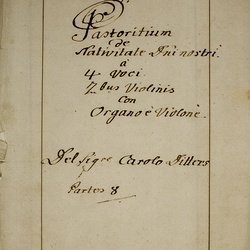 Pastoritium
de
Nativitate Dni nostri
à
4 Voci
2 bus Violinis
con
Organo è Violone
Del Sigre Carolo Dillers
Partes 8